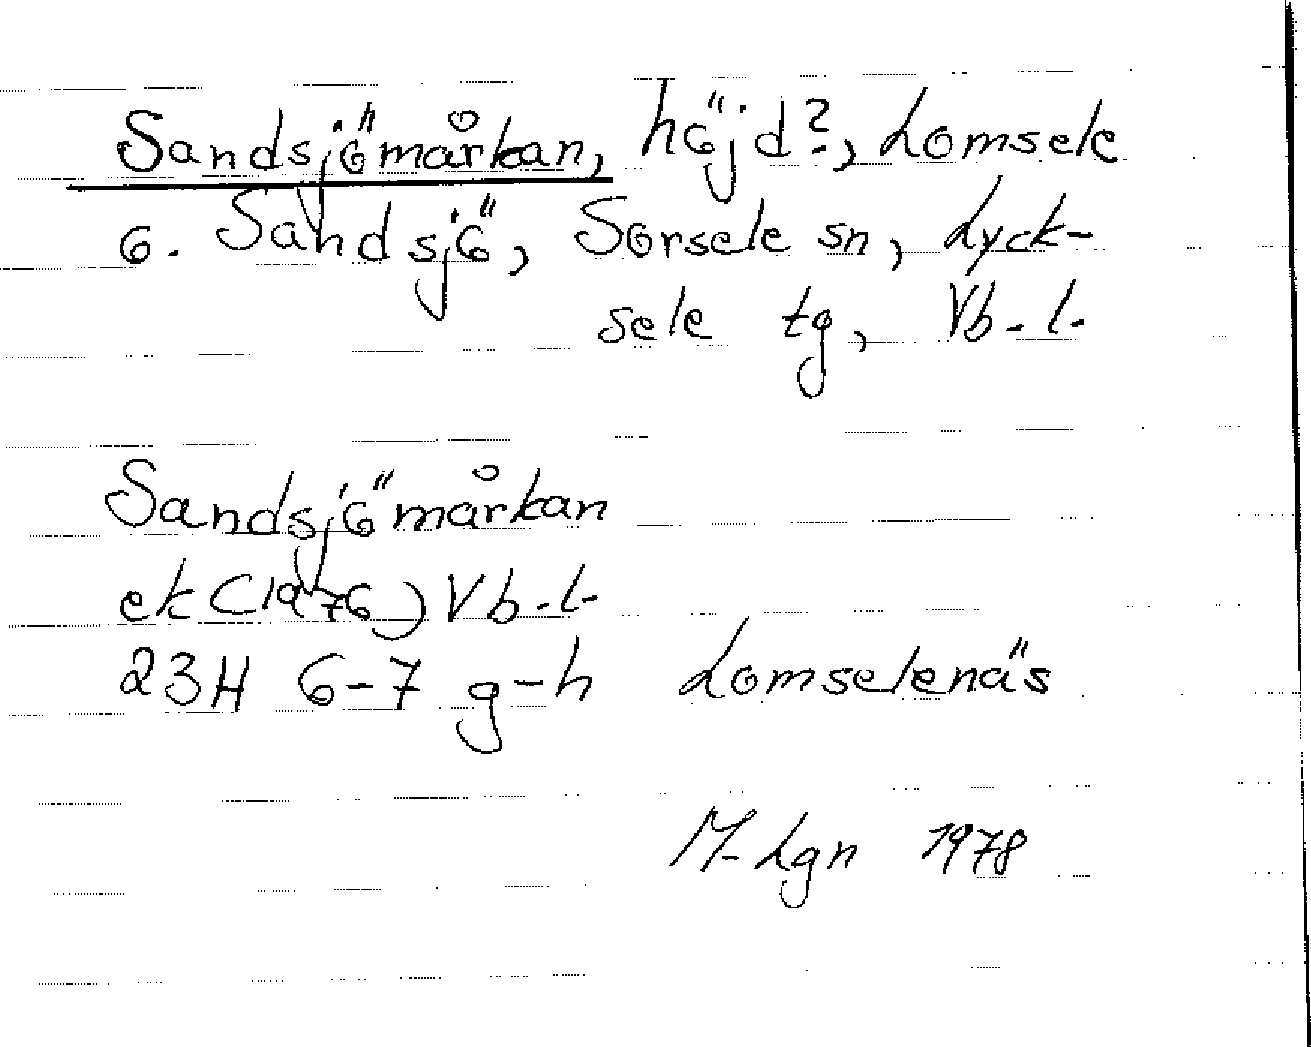 Sandsjömårkan, höjd?, Lomsele
o. Sandsjö, Sorsele sn, Lyck-
sele tg, Vb.l.
Sandsjömårkan
ek (1976) Vb.l.
23H 6-7 g-h Lomselenäs
M-Lgn 1978